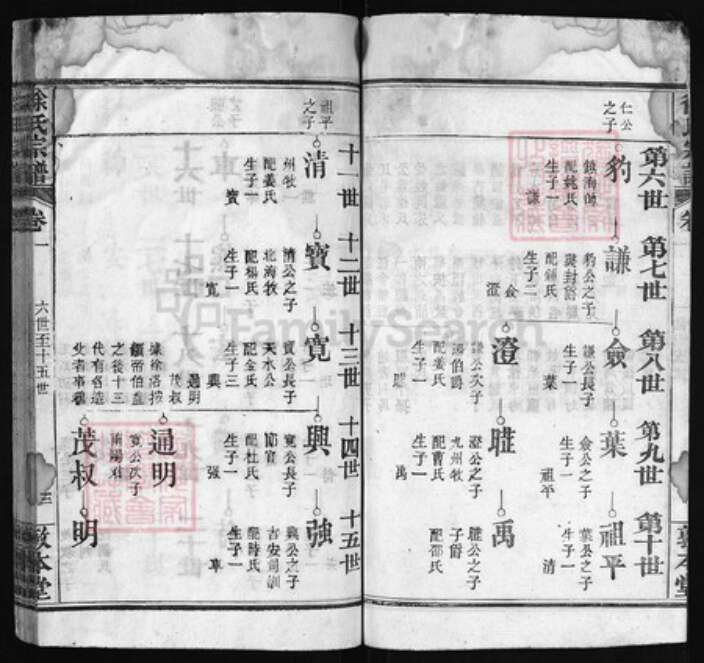 仁公之子
第六世
第七世
第八世
第九世
第十世
豹
鎮海帥
配姚氏
生子一
謙
謙
豹公之子
配鍾氏
生子二
僉
澄
僉
謙公長子
生子一
葉
葉
僉公之子
生子一
祖平
祖平
葉公之子
生子一
清
澄
謙公次子
湯伯爵
配姜氏
生子一
聖
澄公之子
九州牧
配曹氏
生子一
禹
禹
子爵
配邵氏
生子一
敦本堂
祖平之子
十一世
十二世
十三世
十四世
十五世
清
州牧一
配姜氏
生子一
寶
寶
清公之子
北海牧
配楊氏
生子一
寬
寬
寶公長子
天水公
配金氏
生子三
興
通明
茂叔
興
寬公長子
節官
配杜氏
生子一
強
強
興公之子
吉安司訓
配時氏
生子一
車
通明
寬公次子
南陽君
茂叔
明
徐氏宗譜
卷一
六世至十五世
三
敦本堂
FamilySearch